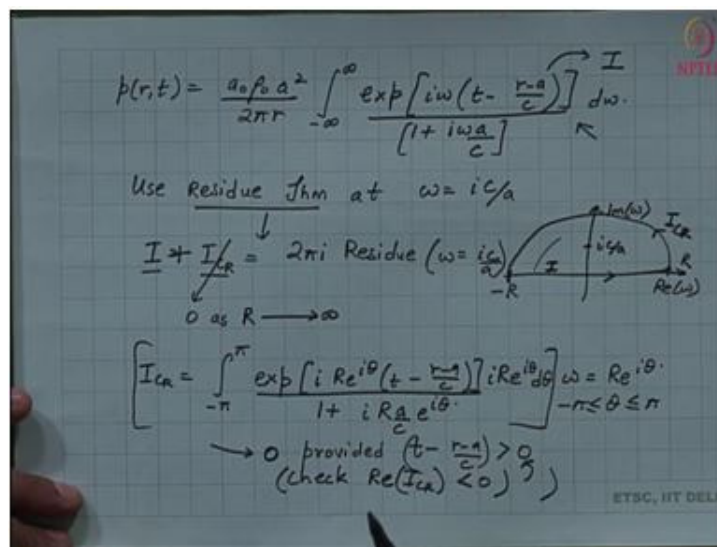 p(r,t) = a₀ρ₀a²/2πr ∫_{-∞}^{∞} exp[iω(t - (r-a)/c)] / [1 + iωa/c] dω.
I
NPTEL
Use Residue Thm at ω = ic/a
I + I_{CR} = 2πi Residue (ω = ic/a)
0 as R → ∞
Im(ω)
I_{CR}
ic/a
I
R
-R
Re(ω)
[I_{CR} = ∫_{-π}^{π} exp[i Re^{iθ}(t - (r-a)/c)] iRe^{iθ}dθ / 1 + i R a/c e^{iθ}] ω = Re^{iθ}.
-π ≤ θ ≤ π
→ 0 provided (t - (r-a)/c) > 0
(check Re(I_{CR}) < 0)
ETSC, IIT DEL